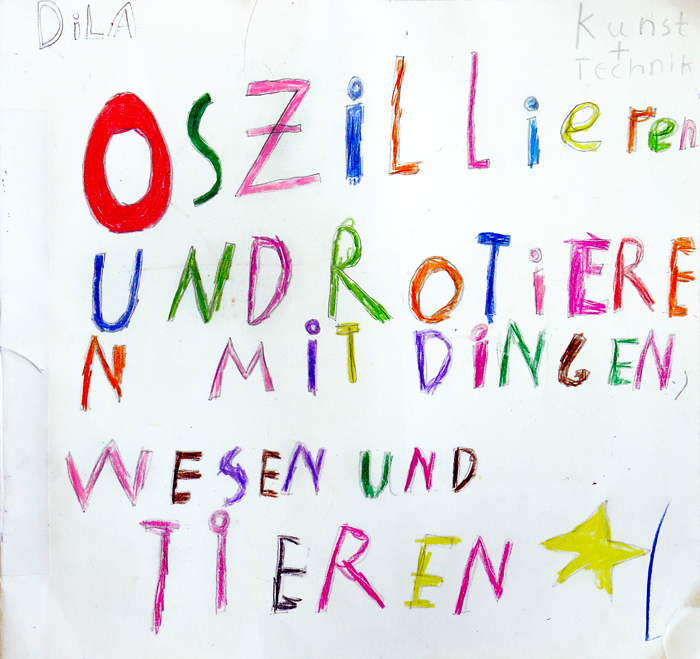 DiLA
Kunst
+
Technik
OSZiLLieren
UND ROTiERE
N MiT DiNGEN,
WESEN UND
TiEREN